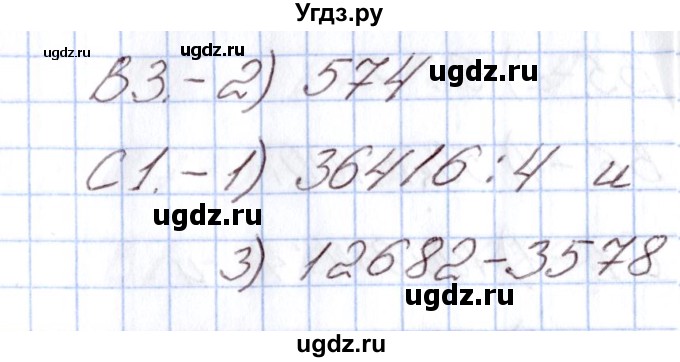 Угдз.ру
ugdz.ru ugdz.ru
В3.- 2) 574 ugdz.ru
С1.- 1) 36416:4 и
ugdz.ru
3) 12682-3578
ugdz.ru
ugdz.ru